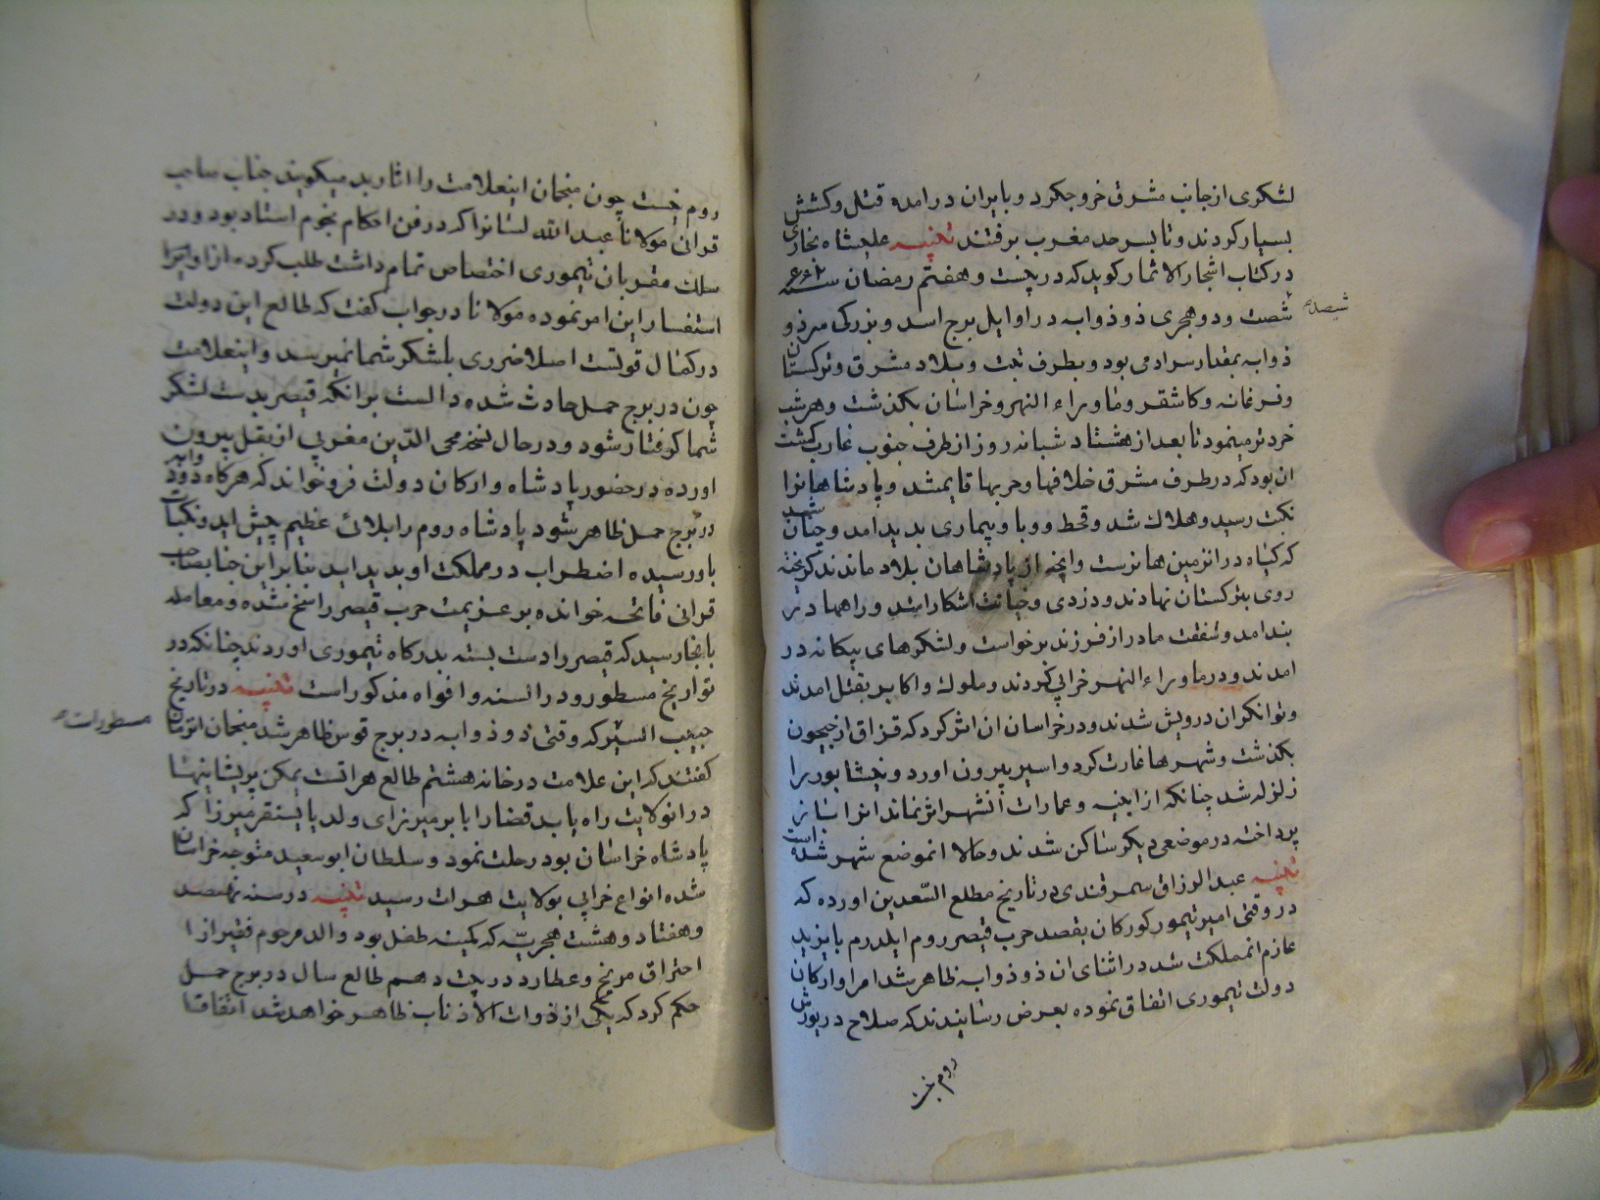 لشکری از جانب مشرق خروج کرد و بایران درآمده قتل و کشش
بسیار کردند و تا بسرحد مغرب برفتند تنبیه علیشاه بخاری
در کتاب اشجار الاثمار کوید که در بیست و هفتم رمضان سنه ۶۶۲
شصت و دو هجری ذو ذوابه در اوایل برج اسد و بزرکی سر ذو
ششصد
ذوابه بمقدار سر ادمی بود و بطرف تبت و بلاد مشرق و ترکستان
و فرغانه و کاشغر و ماوراء النهر و خراسان بکذشت و هر شب
خردتر مینمود تا بعد از هشتاد شبانه روز از طرف جنوب غارب کشت
ان بود که در طرف مشرق خلافها و حربها قایم شد و پادشاهانرا
نکبت رسید و هلاک شد و قحط و وبا و بیماری پدید امد و چنان شد
که کیاه در انزمین ها نرست و انچه از پادشاهان بلاد ماندند کریخته
روی بترکستان نهادند و دزدی و خیانت اشکارا شد و راهها در
بند امد و شفقت مادر از فرزند برخواست و لشکرهای بیکانه در
امدند و در ماوراء النهر خرابی کردند و ملوک و اکابر بقتل امدند
و توانکران درویش شدند و در خراسان ان اثر کرد که قزاق از جیحون
بکذشت و شهرها غارت کرد و اسیر بیرون اورد و نیشابور را
زلزله شد چنانکه از ابنیه و عمارات انشهر اثر نماند انرا باز
پرداخته در موضعی دیکر ساکن شدند و حالا انموضع شهر شده است
تنبیه عبد الرزاق سمرقندی در تاریخ مطلع السعدین اورده که
در وقتی امیر تیمور کورکان بقصد حرب قیصر روم ایلدرم بایزید
عازم انمملکت شد در اثنای ان ذو ذوابه ظاهر شد امرا و ارکان
دولت تیموری اتفاق نموده بعرض رسانیدند که صلاح در یورش
روم نیست
روم نیست چون منجمان اینعلامت را اثار بد میکویند جناب صاحب
قرانی مولانا عبد الله لسان را که در فن احکام نجوم استاد بود و در
سلک مقربان تیموری اختصاص تمام داشت طلب کرده از او
استفسار این امر نموده مولانا در جواب کفت که طالع این دولت
در کمال قوتست اصلا ضرری بلشکر شما نمیرسد و اینعلامت
چون در برج حمل حادث شده دالست برانکه قیصر بدست لشکر
شما کرفتار شود و در حال نسخه محی الدین مغربی از بغل بیرون
اورده در حضور پادشاه و ارکان دولت فرو خواند که هرکاه ذو ذوابه
در برج حمل ظاهر شود پادشاه روم را بلائ عظیم پیش اید و نکبات
باو رسیده اضطراب در مملکت او پدید اید بنابراین جناب صاحب
قرانی فاتحه خوانده بر عزیمت حرب قیصر راسخ شده و معامله
بانجا رسید که قیصر را دست بسته بدرکاه تیموری اوردند چنانکه در
تواریخ مسطور و در السنه و افواه مذکور است تنبیه در تاریخ
مسطورات
حبیب السیر که وقتی ذو ذوابه در برج قوس ظاهر شد منجمان انزمان
کفتند که این علامت در خانه هشتم طالع هراتست یمکن پریشانیها
در انولایت راه یابد قضا را بابر میرزای ولد بایسنقر میرزا که
پادشاه خراسان بود رحلت نمود و سلطان ابو سعید متوجه خراسان
شده انواع خرابی بولایت هرات رسید تنبیه در سنه نهصد
و هفتاد و هشت هجریه که کمینه طفل بود والد مرحوم فقیر از
احتراق مریخ و عطارد در بیت دهم طالع سال در برج حمل
حکم کرد که یکی از ذوات الاذناب ظاهر خواهد شد اتفاقا